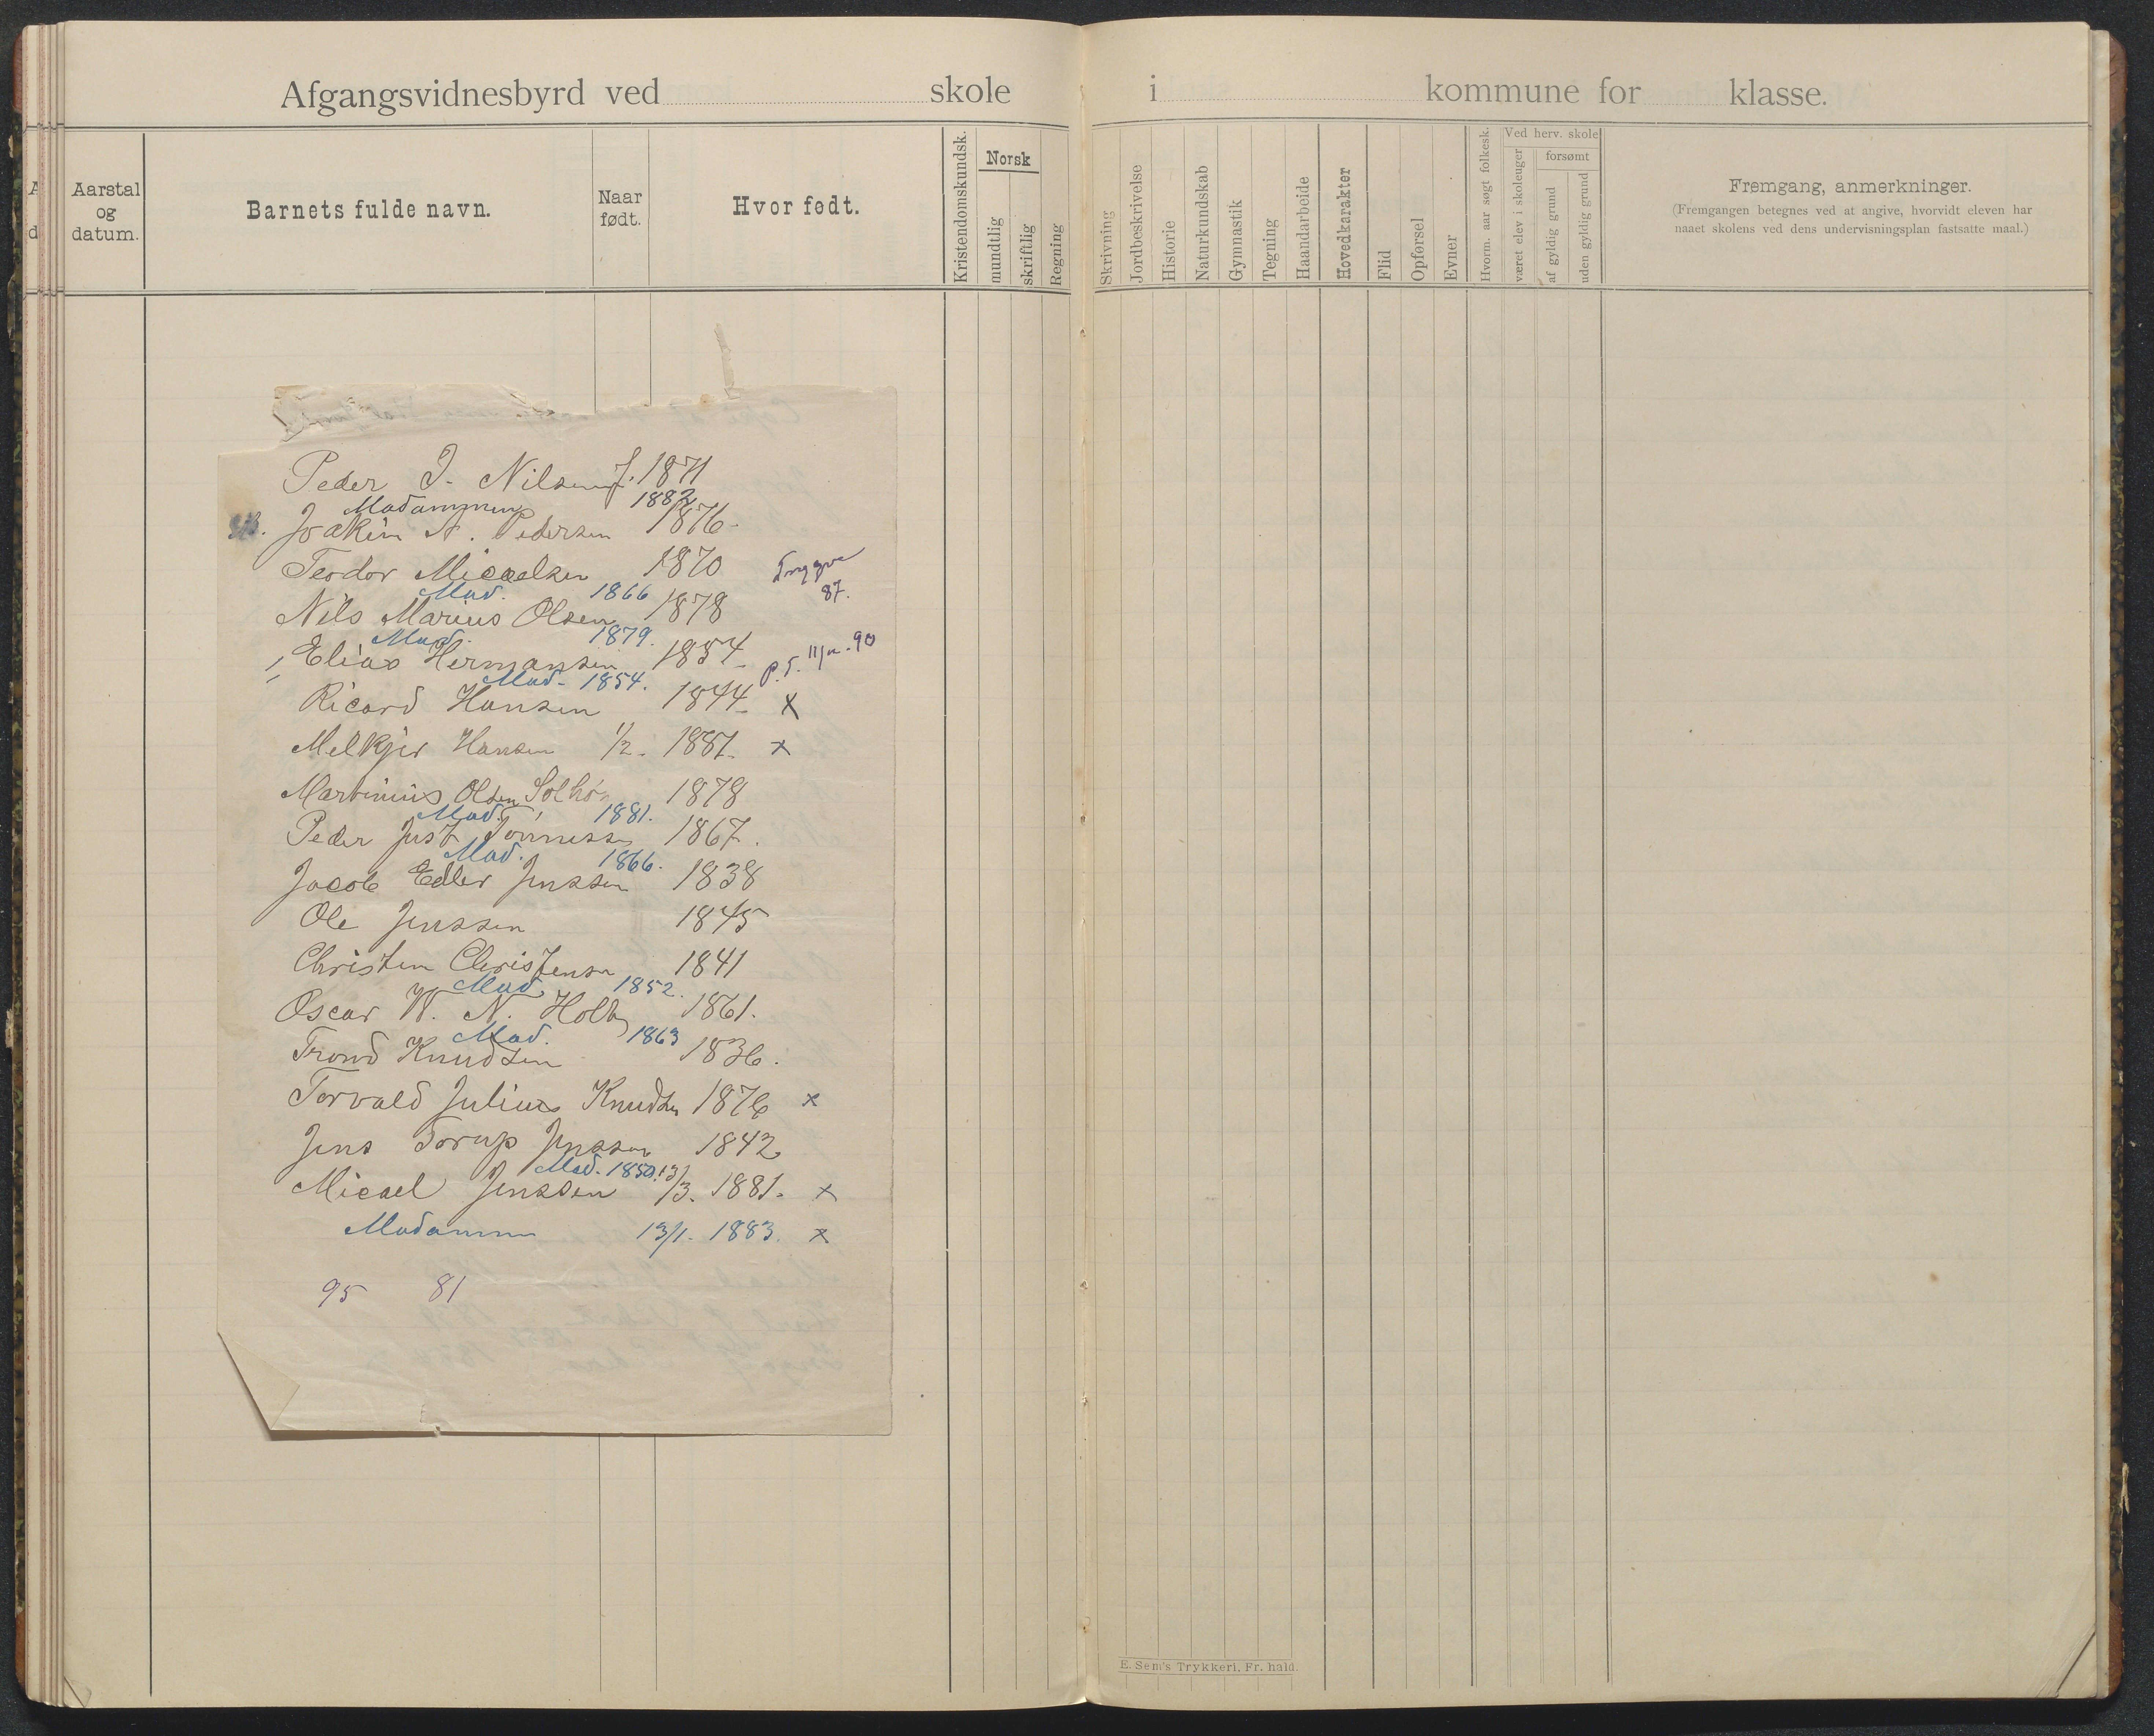 Afgangsvidnesbyrd ved skole i kommune for klasse.
Aarstal og datum.
Barnets fulde navn.
Naar født.
Hvor født.
Kristendomskundsk.
Norsk
mundtlig
skriftlig
Regning
Skrivning
Jordbeskrivelse
Historie
Naturkundskab
Gymnastik
Tegning
Haandarbeide
Hovedkarakter
Flid
Opførsel
Evner
Hvorm. aar søgt folkesk.
Ved herv. skole
været elev i skoleuger
forsømt
af gyldig grund
uden gyldig grund
Fremgang, anmerkninger.
(Fremgangen betegnes ved at angive, hvorvidt eleven har
naaet skolens ved dens undervisningsplan fastsatte maal.)
Peder J. Nilsen 1871
Madammen 1882
Joakim A. Pedersen 1876
Teodor Micaelsen 1870
Trygve 87.
Mad. 1866
Nils Marius Olsen 1878
Mad. 1879.
Elias Hermansen 1854
Mad. 1854.
Ricard Hansen 1844 x
Melkjer Hansen 1/2 - 1887. x
Martinius Olsen 1878
Mad. 1881.
Peder Just Tønnessen 1867.
Mad. 1866.
Jacob Edler Jenssen 1838
Ole Jenssen 1845
Christen Christensen 1841
Mad. 1852.
Oscar W. N. Holby 1861.
Mad. 1863
Trond Knudsen 1836.
Torvald Julius Knudsen 1876 x
Jens Torup Jenssen 1842
Mad. 1850.
Micael Jenssen 13/3. 1881. x
Madammen 13/1. 1883. x
95 81
E. Sem's Trykkeri, Fr. hald.